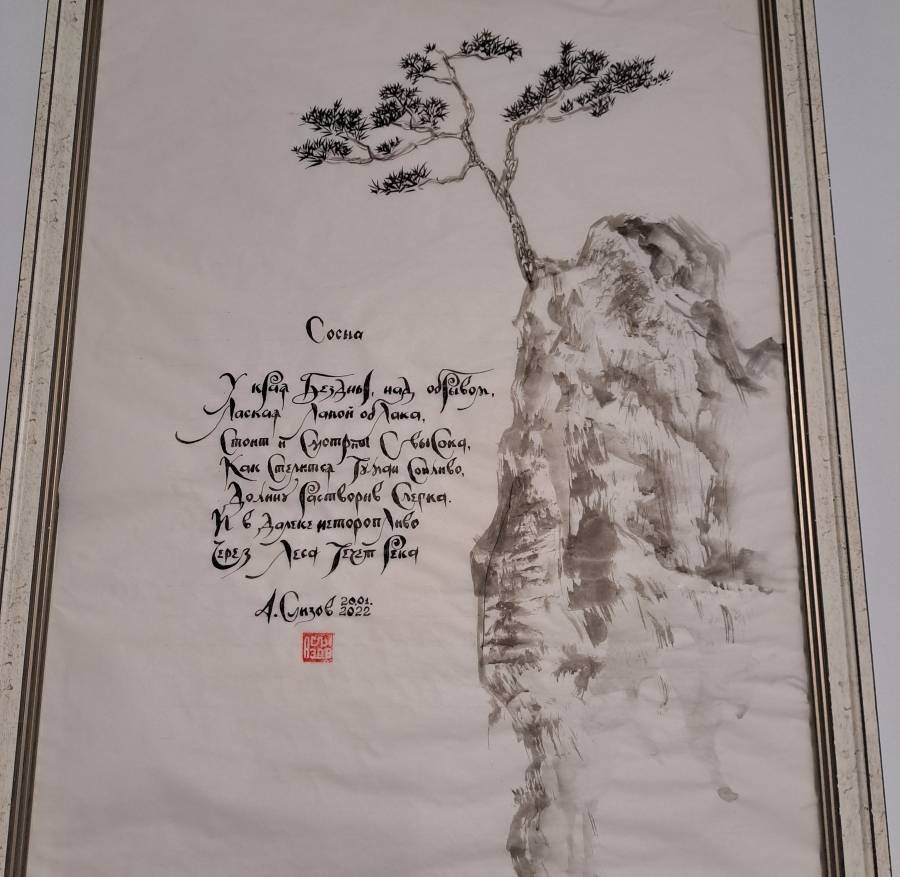 Сосна
У края Бездны, над обрывом,
Лаская Лапой облака,
Стоит и Смотрит Свысока,
Как Стелится Туман Сонливо,
Долину растворив Слегка.
И в далеке неторопливо
Через Леса Течёт Река
А. Сизов 20.01.
2022